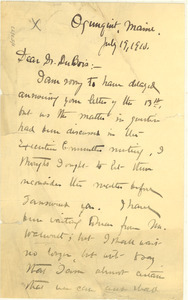 Ogunquit, Maine.
July 19, 1910.
Dear Dr. DuBois:-
I am sorry to have delayed
answering your letter of the 13th,
but as the matter in question
had been discussed in the
Executive Committee meeting, I
thought I ought to let them
reconsider the matter before
I answered you. I have
been waiting to hear from
but I shall wait
no longer, but will say
that I am almost certain
that we can